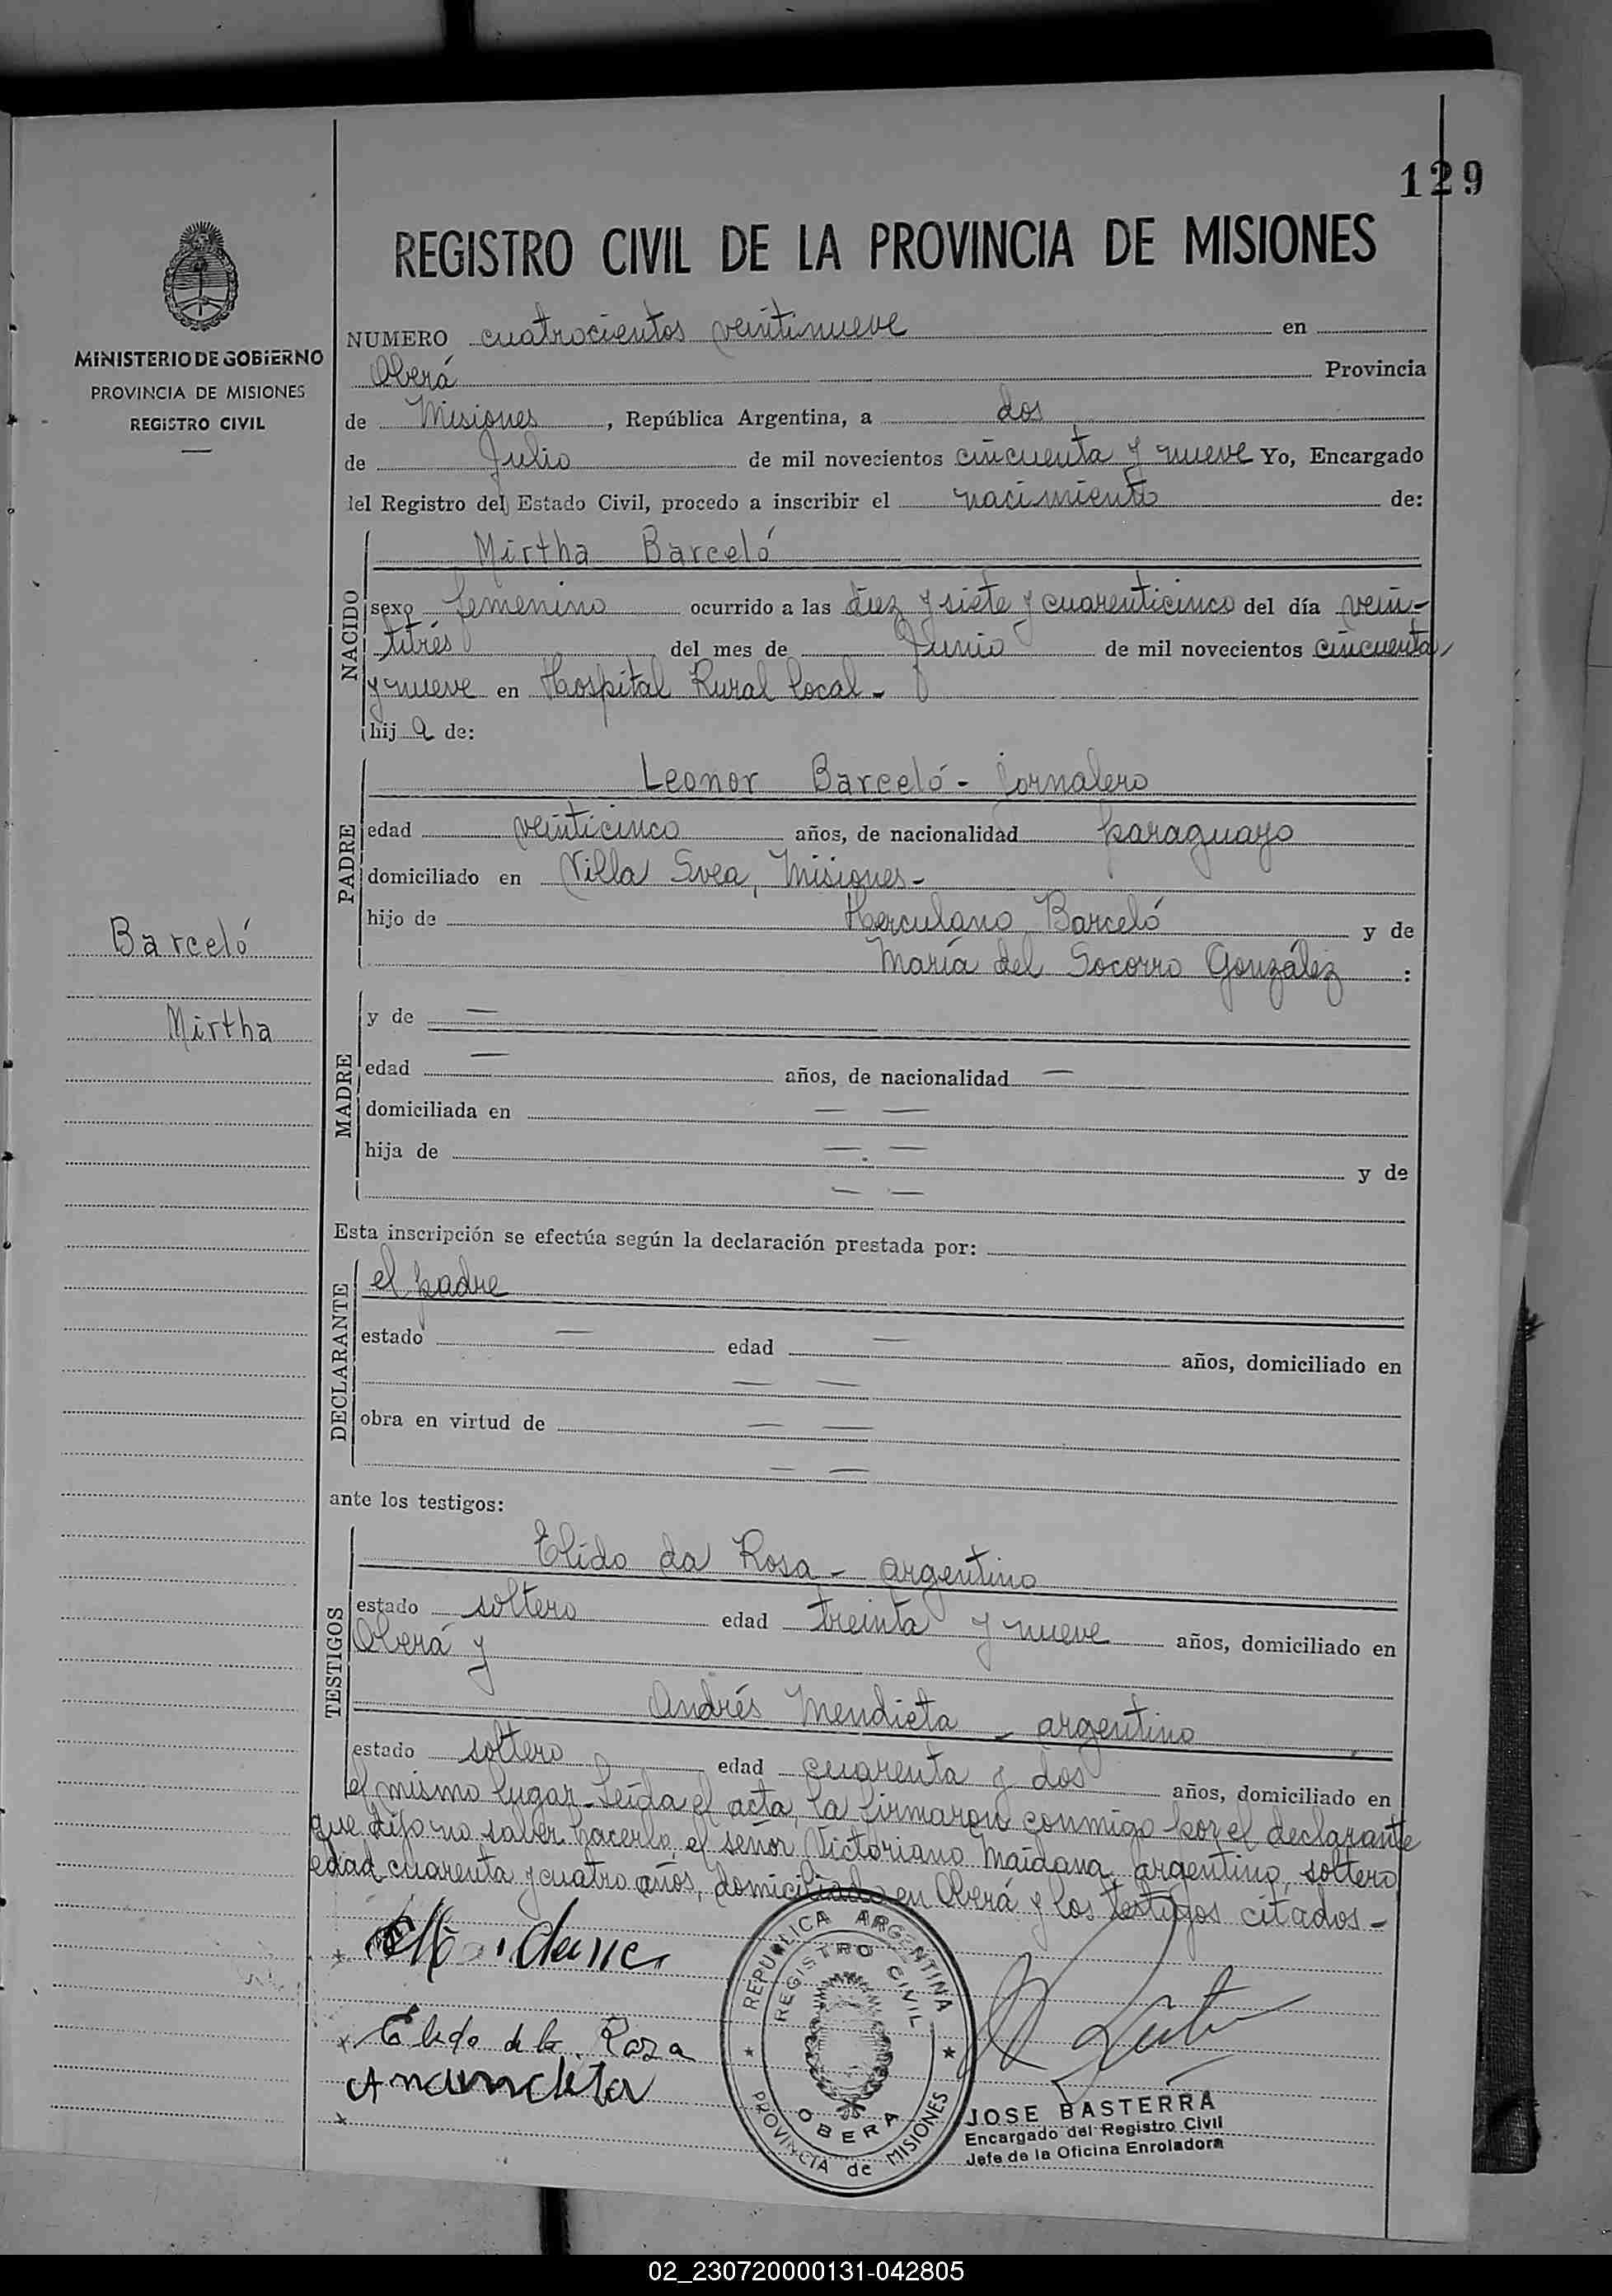 129
REGISTRO CIVIL DE LA PROVINCIA DE MISIONES
MINISTERIO DE GOBIERNO
PROVINCIA DE MISIONES
REGISTRO CIVIL
NUMERO cuatrocientos veintinueve en
Oberá Provincia
de Misiones, República Argentina, a dos
de Julio de mil novecientos cincuenta y nueve Yo, Encargado
del Registro del Estado Civil, procedo a inscribir el nacimiento de:
NACIDO
Mirtha Barceló
sexo femenino ocurrido a las diez y siete y cuarenticinco del día vein-
titrés del mes de Junio de mil novecientos cincuenta
y nueve en Hospital Rural local-
hija de:
PADRE
Leonor Barceló - Jornalero
edad veinticinco años, de nacionalidad paraguayo
domiciliado en Villa Svea, Misiones-
hijo de Herculano Barceló y de
María del Socorro González :
Barceló
Mirtha
MADRE
y de —
edad — años, de nacionalidad —
domiciliada en — —
hija de — — y de
— —
Esta inscripción se efectúa según la declaración prestada por:
DECLARANTE
el padre
estado — edad — años, domiciliado en
— —
obra en virtud de — —
— —
ante los testigos:
TESTIGOS
Elido da Rosa - argentino
estado soltero edad treinta y nueve años, domiciliado en
Oberá y
Andrés Mendieta - argentino
estado soltero edad cuarenta y dos años, domiciliado en
el mismo lugar- Leída el acta, la firmaron conmigo por el declarante
que dijo no saber hacerlo, el señor Victoriano Maidana, argentino, soltero,
edad cuarenta y cuatro años, domiciliado en Oberá y los testigos citados-
Elido de la Rosa
REPUBLICA ARGENTINA
REGISTRO CIVIL
OBERA
PROVINCIA de MISIONES
JOSE BASTERRA
Encargado del Registro Civil
Jefe de la Oficina Enroladora
02_230720000131-042805